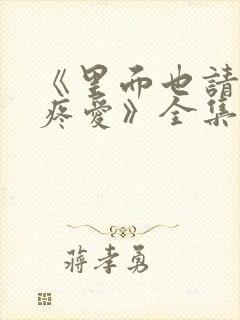 《里面也請
疼愛》全集
蔣孝勇